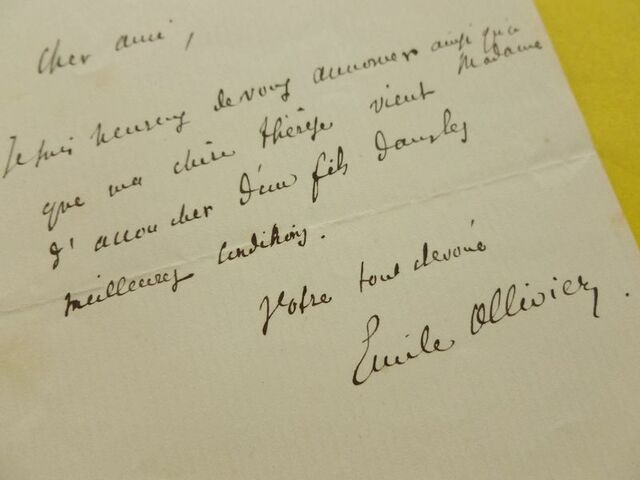 Cher ami,
Je suis heureux de vous annoncer ainsi qu'à
Madame
que ma chère Thérèse vient
d'accoucher d'un fils dans les
meilleures conditions.
Votre tout dévoué
Emile Ollivier.